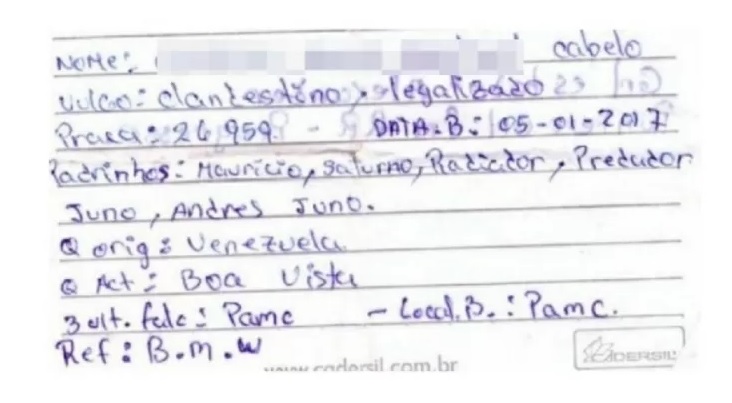 Nome: cabelo
Vulgo: clandestino, legalizado
Praça: 26,959 - DATA.B: 05-01-2017
Padrinhos: Mauricio, Saturno, Radiador, Predador
Juno, Andres Juno.
Q orig: Venezuela
Q Act: Boa Vista
3 ult. falc: Pamc - Local.B.: Pamc.
Ref: B.m.w
www.cadersil.com.br
CADERSIL